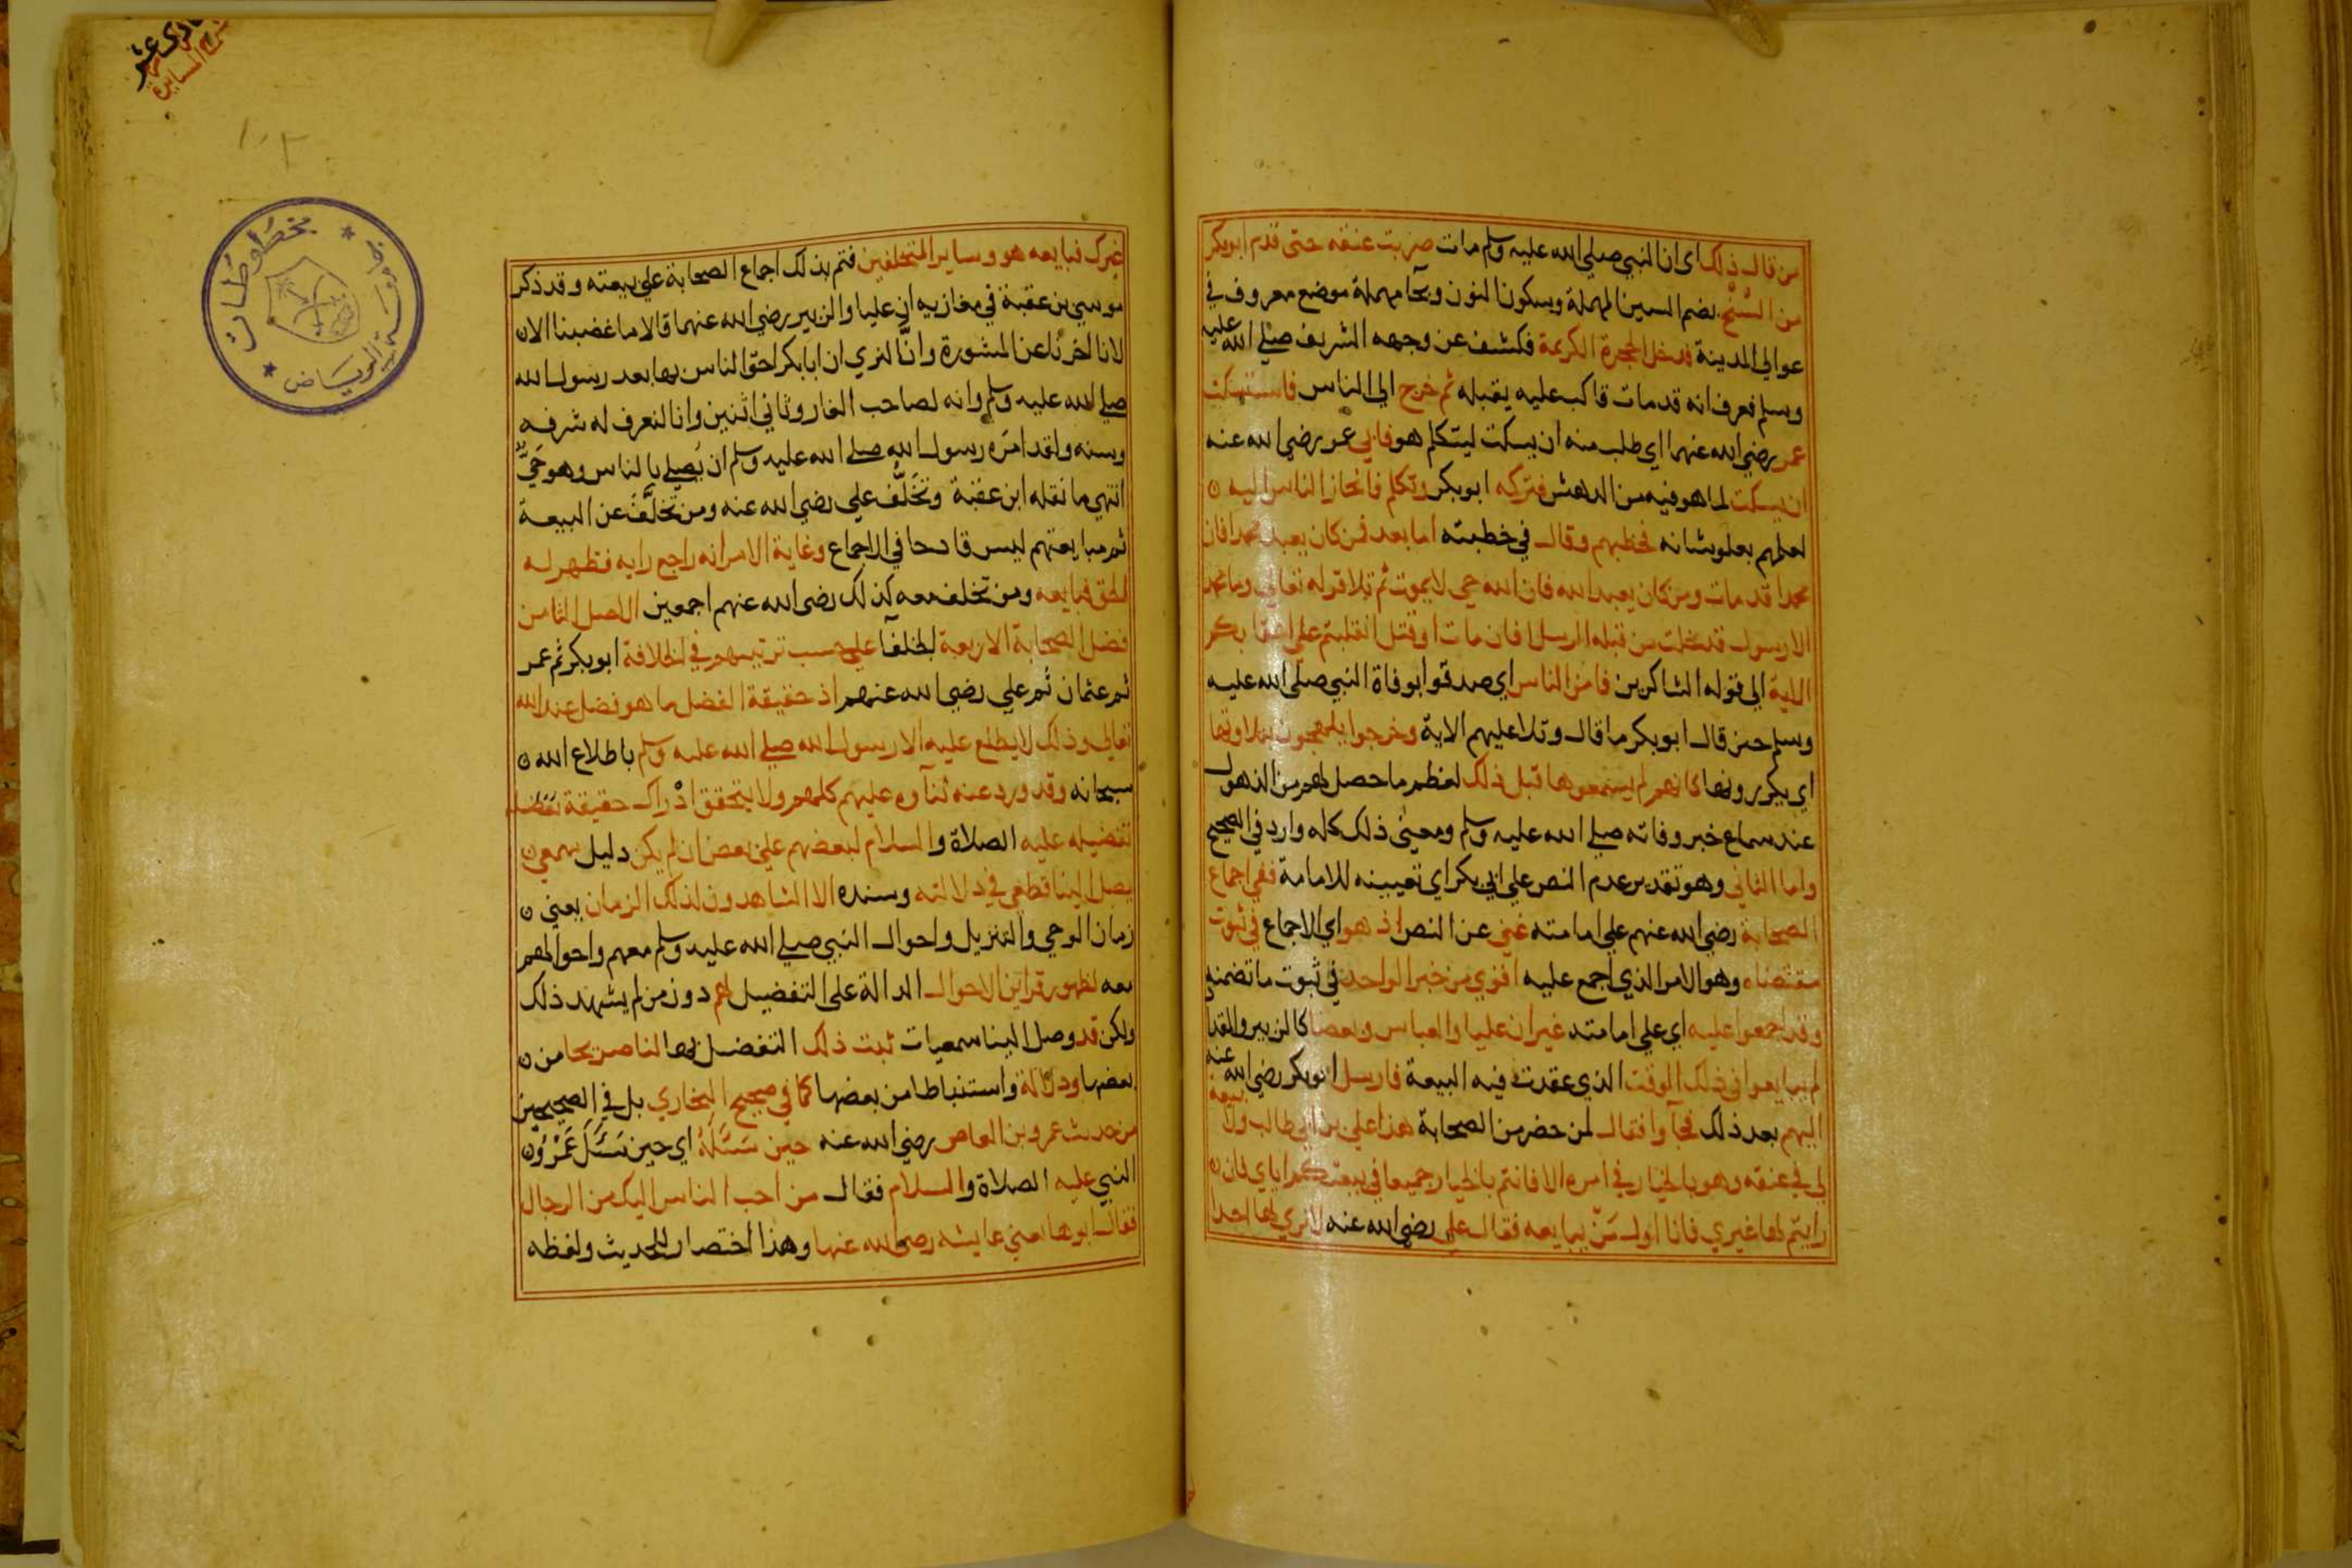 من قال ذلك اى ان النبي صلي الله عليه وسلم مات ضربت عنقه حتى قدم ابو بكر
من السُنْح بضم السين المهملة وسكون النون وبحآ مهملة موضع معروف في
عوالي المدينة فدخل الحجرة الكريمة فكشف عن وجهه الشريف صلي الله عليه
وسلم فعرف انه قد مات فاكب عليه يقبله ثم خرج الي الناس فاستسكت
عمر رضي الله عنهما اي طلب منه ان يسكت ليتكلم هو فابي عمر رضي الله عنه
ان يسكت لما هو فيه من الدهش فتركه ابو بكر وتكلم فانحاز الناس اليه
لعلمهم بعلو شانه فخطبهم وقال في خطبته اما بعد فمن كان يعبد محمدا فان
محمدا قد مات ومن كان يعبد الله فان الله حي لا يموت ثم تلا قوله تعالي وما محمد
الا رسول قد خلت من قبله الرسل افان مات او قتل انقلبتم على اعقابكم
الاية الي قوله الشاكرين فامن الناس اي صدقوا بوفاة النبي صلى الله عليه
وسلم حين قال ابو بكر ما قال وتلا عليهم الاية وخرجوا يلهجون بتلاوتها
اي يكررونها كانهم لم يسمعوها قبل ذلك لعظم ما حصل لهم من الذهول
عند سماع خبر وفاته صلي الله عليه وسلم ومعنى ذلك كله وارد في الصحيح
واما الثاني وهو تقدير عدم النص علي ابي بكر اي تعيينه للامامة ففي اجماع
الصحابة رضي الله عنهم علي امامته غني عن النص اذ هو اي الاجماع في ثبوت
مقتضاه وهو الامر الذي اجمع عليه اقوي من خبر الواحد في ثبوت ما تضمنه
وقد اجمعوا عليه اي علي امامته غير ان عليا والعباس وبعضا كالزبير والمقداد
لم يبايعوا في ذلك الوقت الذي عقدت فيه البيعة فارسل ابو بكر رضي الله عنه
اليهم بعد ذلك فجآوا فقال لمن حضر من الصحابة هذا علي بن ابي طالب ولا بيعة
لي في عنقه وهو بالخيار في امره الا فانتم بالخيار جميعا في بيعتكم اياي فان
رايتم لها غيري فانا اول مَنْ يبايعه فقال علي رضي الله عنه لا نري لها احدا
غيرك فبايعه هو وساير المتخلفين فتم بذلك اجماع الصحابة علي بيعته وقد ذكر
موسي بن عقبة في مغازيه ان عليا والزبير رضي الله عنهما قالا ما غضبنا الا ان
لانا اخرنا عن المشورة وانا لنري ان ابا بكر احق الناس بها بعد رسول الله
صلي الله عليه وسلم وانه لصاحب الغار وثاني اثنين وانا لنعرف له شرفه
وسنه ولقد امَره رسول الله صلي الله عليه وسلم ان يُصلي بالناس وهو حَيٌّ
انتهي ما نقله ابن عقبة وتخلُّف علي رضي الله عنه ومن تخلَّفَ عن البيعة
ثم مبايعتهم ليس قادحا في الاجماع وغاية الامر انه راجع رايه فظهر له
الحق فبايعه ومن تخلف معه كذلك رضى الله عنهم اجمعين الاصل الثامن
فضل الصحابة الاربعة الخلفآ علي حسب ترتيبهم في الخلافة ابو بكر ثم عمر
ثم عثمان ثم علي رضي الله عنهم اذ حقيقة الفضل ما هو فضل عند الله
تعالي وذلك لا يطلع عليه الا رسول الله صلي الله عليه وسلم باطلاع الله
سبحانه وقد ورد عنه ثنآوه عليهم كلهم ولا يتحقق ادْراك حقيقة تفضله
تفضيله عليه الصلاة والسلام لبعضهم علي بعض ان لم يكن دليل سمعي
يصل الينا قطعي في دلالته وسنده الا الشاهدون لذلك الزمان يعني
زمان الوحي والتنزيل واحوال النبي صلي الله عليه وسلم معهم واحوالهم
معه لظهور قراين الاحوال الدالة على التفضيل لهم دون من لم يشهد ذلك
ولكن قد وصل الينا سمعيات ثبت ذلك التفضيل بها لنا صريحا من
بعضها ودلالة واستنباطا من بعضها كما في صحيح البخاري بل في الصحيحين
من حديث عمرو بن العاص رضي الله عنه حين سَئَلَهُ اي حين سَئَلَ عَمْرٌو
النبي عليه الصلاة والسلام فقال من احب الناس اليك من الرجال
فقال ابوها يعني عايشه رضي الله عنها وهذا اختصار للحديث ولفظه
١٠٢
مخطوطات
جامعة الرياض